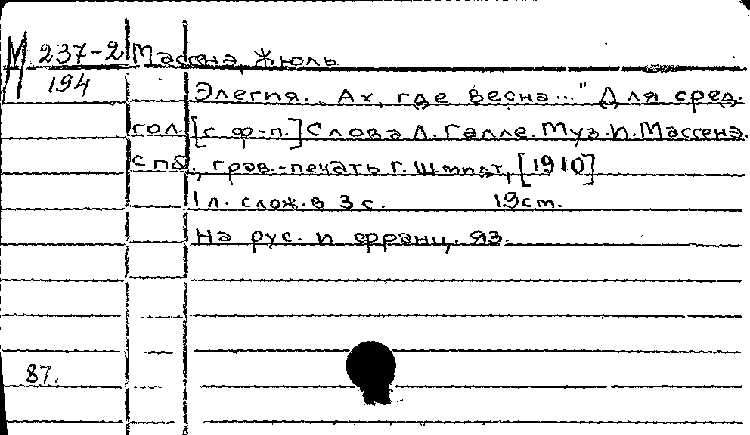 М 237-2 Массена, Жюль
194
Элегия. „Ах, где весна..." Для сред.
гол. [с ф-п.] Слова Л. Галле. Муз. И. Массенэ.
СПб., грав.-печать Г. Шмидт, [1910]
1 л. слож. в 3 с. 19 cm.
На рус. и франц. яз.
87.